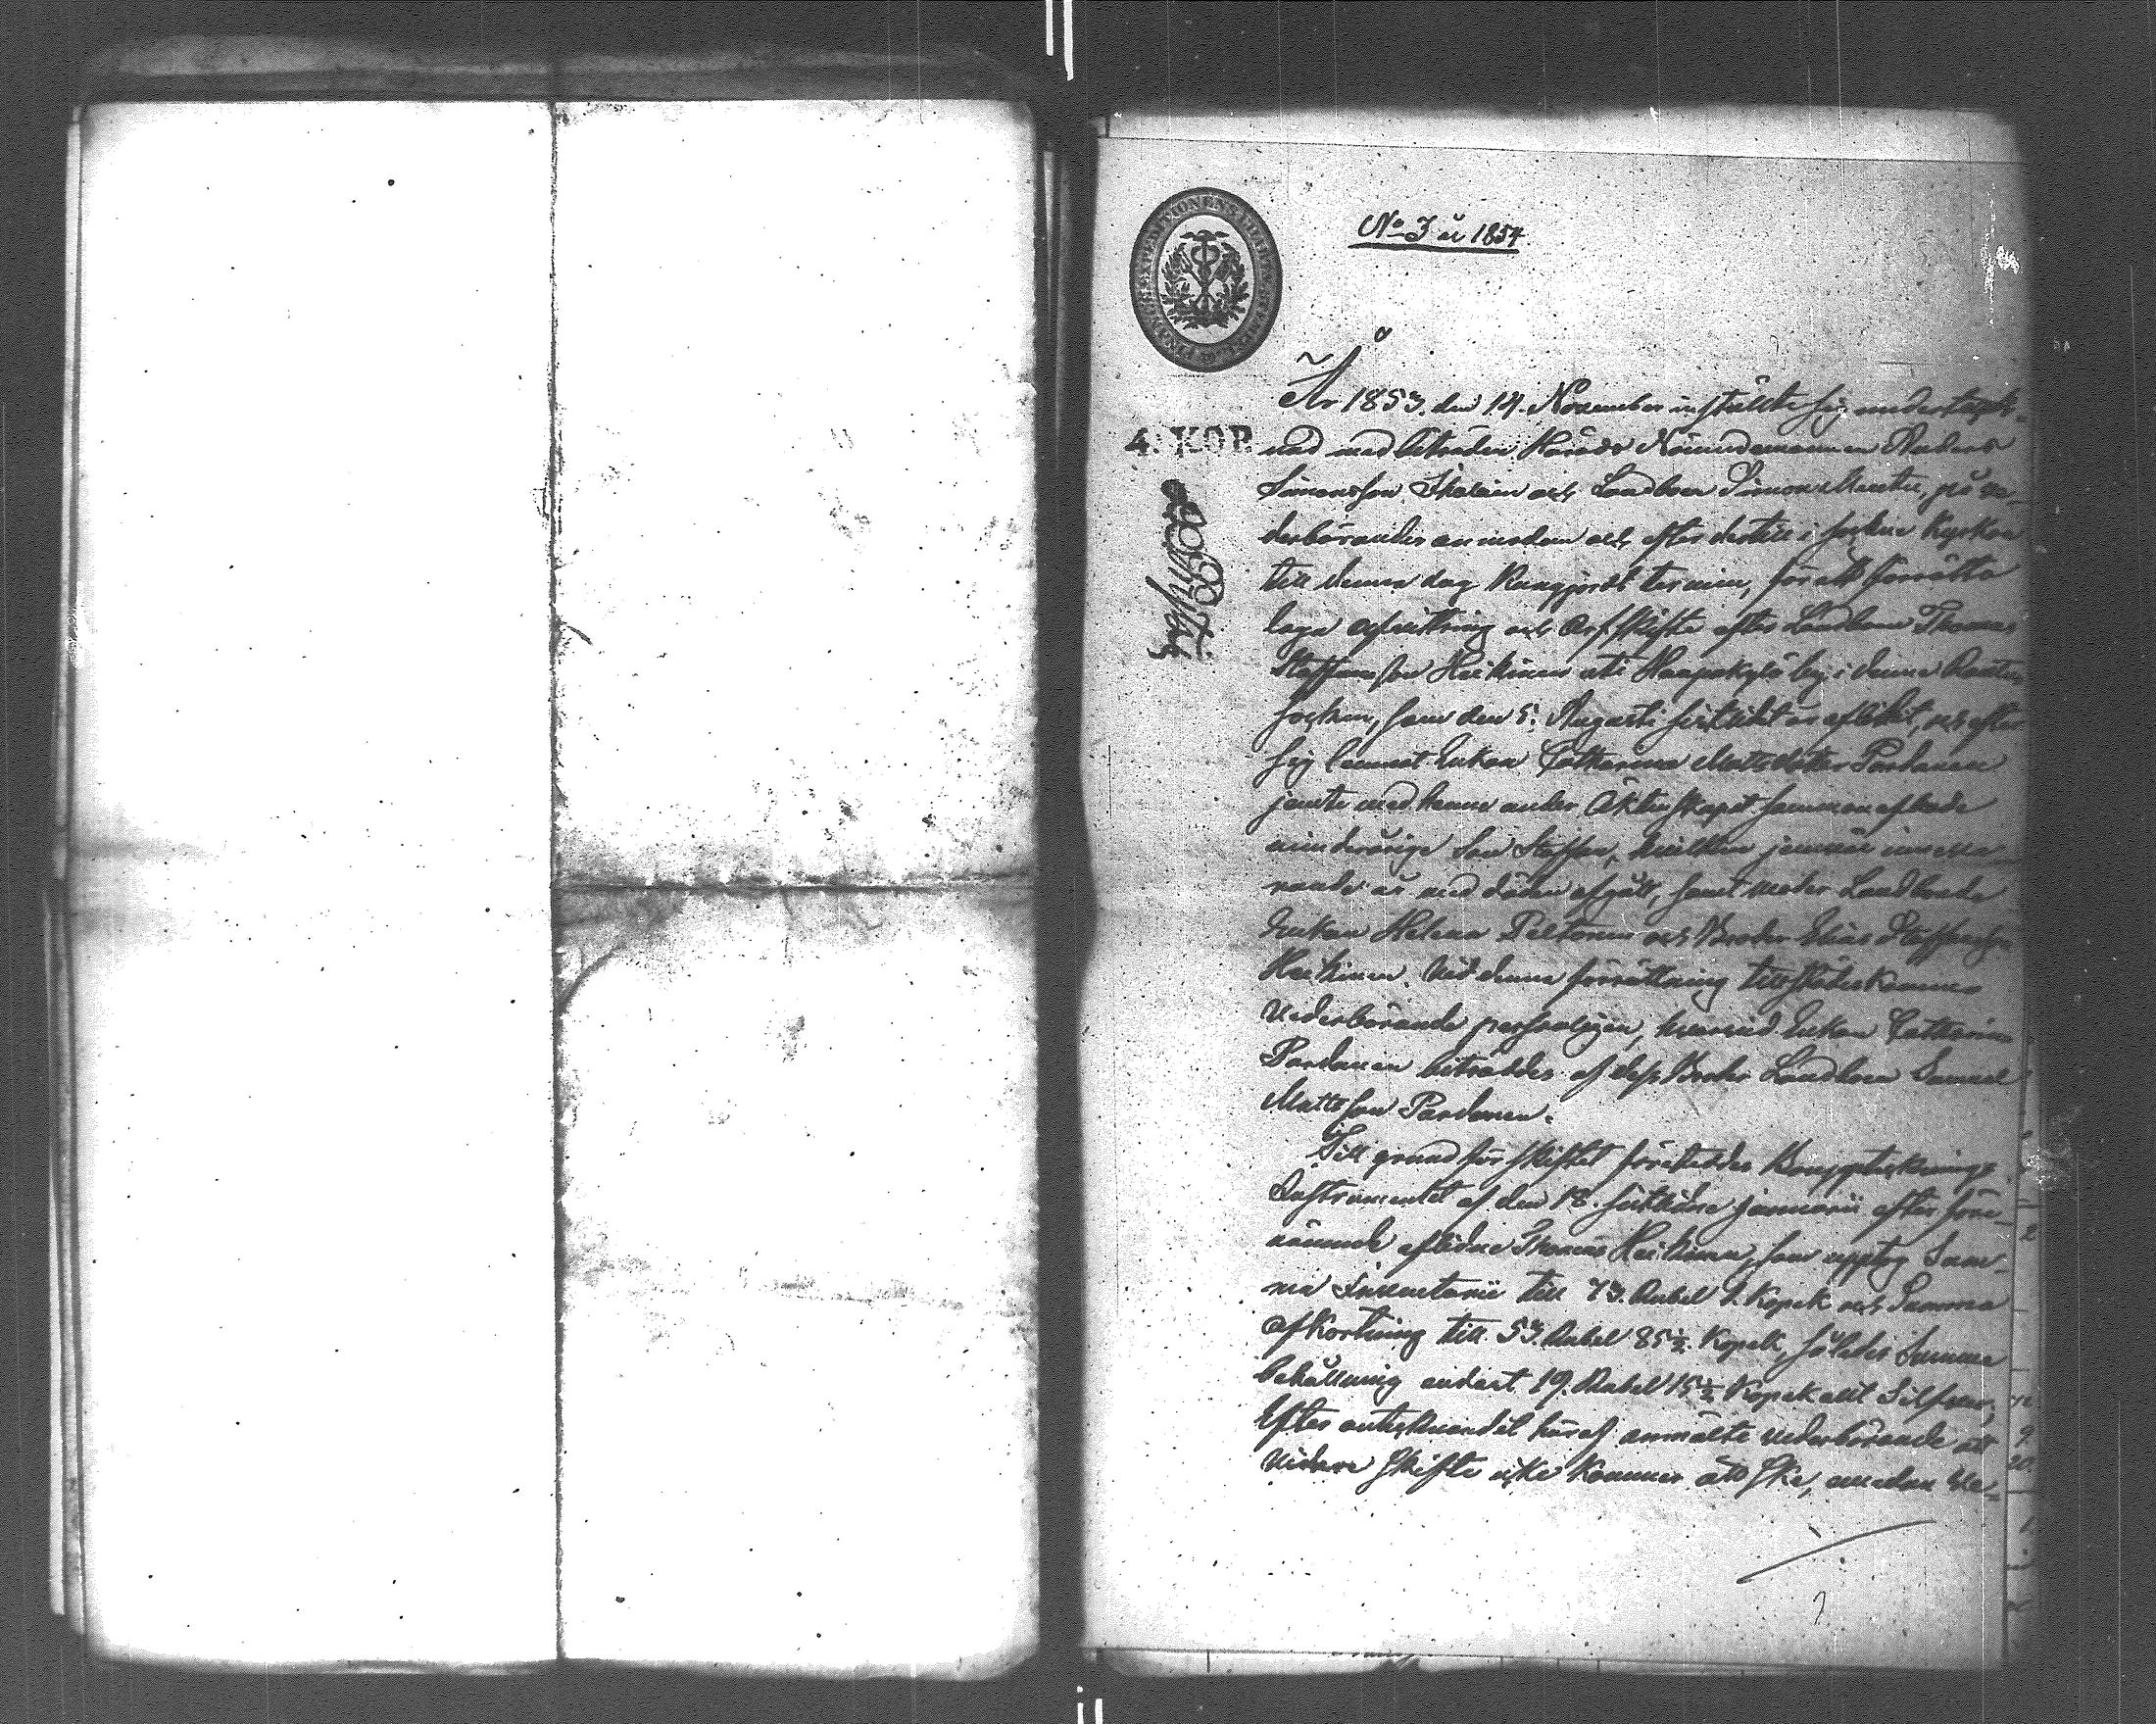 No 3 år 1854.
4. KOP.
År 1853. den 14. November instälde sig underteck-
nad med biträden Härads Nämndemannen Anders
Simonsson och Landboen Simon på ve-
derbörandes anmodan och efter dertill i sockne Kyrkan
till denna dag kungjordt termin, för att förrätta
laga afvittring och Arfskifte efter Landboen Thomas
Staffansson Heikinen uti Haapakylä by i denne Rautus
socken, som den 5. Augusti sistlidit år aflidit, och efter
sig lemnat Enkan Catharina Mattsdotter Pardanen
jemte med henne under Äktenskapet sammanaflade
minderårige Son Staffan, hvilken jemväl inneva-
rande år med döden afgått, samt moder Landboade
Enkan Helena Peltonen och Broder Elias Staffansson
Heikinen. Vid denna förrättning tillstädeskommo
vederbörande personligen, hvarvid Enkan Catharina
Pardanen biträddes af dess Broder Landboen Samuel
Mattsson Pardanen.
Till grund för skiftet företeddes Bouppteknings
Instrumentet af den 18. sistlidne Januarii efter före-
nämnde aflidne Thomas Heikinen, som upptog Sum-
ma Inventarii till 73. Rubel 1. Kopek och Summa
afkortning till 53. Rubel 85½. Kopek, således Summa
behållning endast 19. Rubel 15½ Kopek allt Silfver,
Efter anteknandet häraf anmälte vederbörande att
vidare skifte icke kommer att ske, emedan